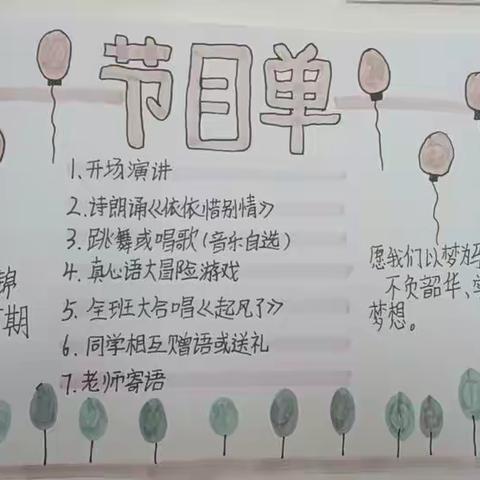 节目单
1.开场演讲
2.诗朗诵《依依惜别情》
3.跳舞或唱歌(音乐自选)
4.真心语大冒险游戏
5.全班大合唱《起风了》
6.同学相互赠语或送礼
7.老师寄语
锦
期
愿我们以梦为
不负韶华、
梦想。